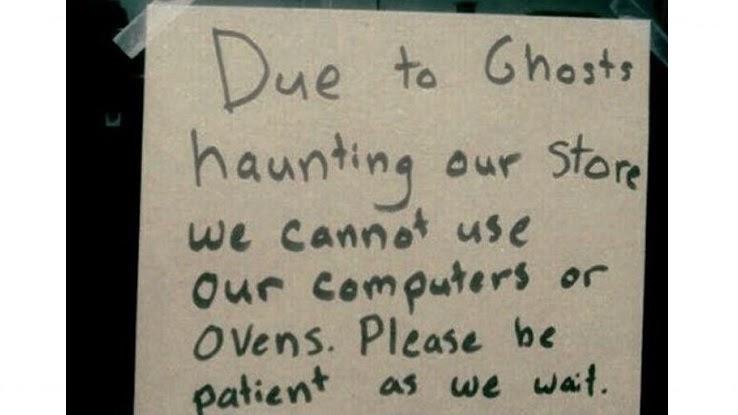 Due to Ghosts
haunting our store
we cannot use
our computers or
ovens. Please be
patient as we wait.